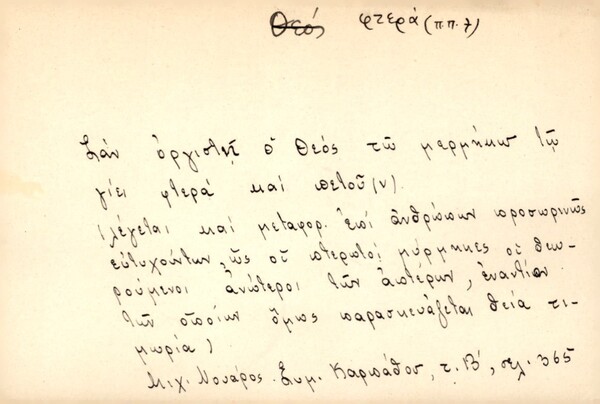 Θεός φτερά (π.π. 7)
Σάν ὀργιστῇ ὁ Θεός τῶ μερμήκω τῷ
γίει φτερά καί πετοῦ(ν).
(λέγεται καί μεταφορ. ἐπί ἀνθρώπων προσωρινῶς
εὐτυχούντων, ὡς οἱ πτερωτοί μύρμηκες οἱ θεω-
ρούμενοι ἀνώτεροι τῶν ἀπτέρων, ἐναντίον
τῶν ὁποίων ὅμως παρασκευάζεται θεία τι-
μωρία)
Μιχ. Νουάρος. Συμ. Καρπάθου, τ. Β', σελ. 365